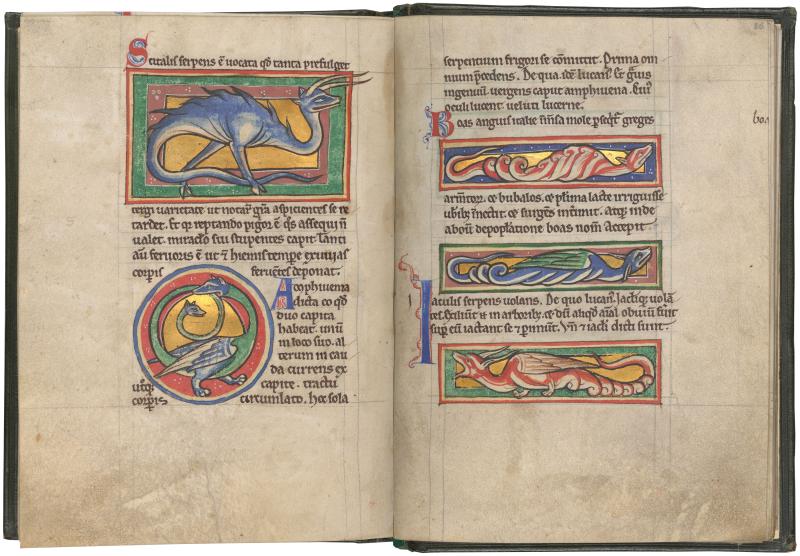 Scitalis serpens ē uocata qð tanta prefulget
tergi uarietate ut notarͫ gr̄a aspicientes se re
tardet. Et qr reptando pigor ē q̄s assequi ñ
ualet. miraclo sui stupentes capit Tanti
aū feruoris ē ut 7 hiemis tempe exuuias
corpis feruētes deponat.
Amphiuena
dicta eo qð
duo capita
habeat. unū
in loco suo. al
terum in cau
da currens ex
utq; capite. tractu
corpis circumlato. hec sola
86
serpentium frigori se cōmittit. Prima om
nium p̄cedens. De qua Lucan̄. Et grauis
ingenuū uergens caput amphiuena. Cui'
oculi lucent ueluti lucerne.
Boas anguis italie īmēsa mole. greges
boa
armītor. et bubalos. et plima lacte irriguis se
ubib; īnectit. et surgēs intimit. Atq; inde
a boum depoplatione boas nom̄ accepit.
Iaculus serpens uolans. De quo lucan̄. Iaciq; uolā
tes. Exiliūt ē in arborib; et dū aliqð aīal obuiū fuit
sup eū iactant se 7 pimunt. Vn̄ 7 iacli dicti sunt.